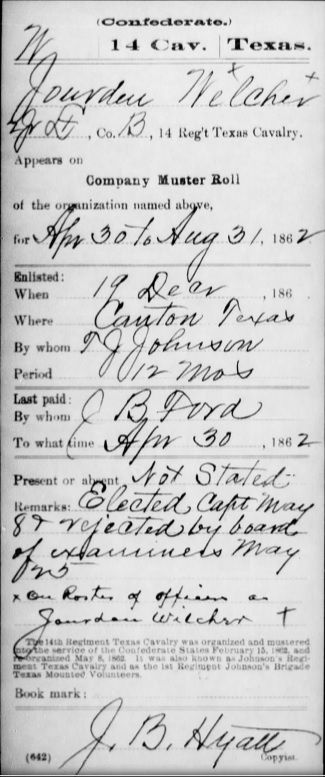 (Confederate.)
W 14 Cav. Texas.
Jourden Welcher
2d Lt, Co. B, 14 Reg't Texas Cavalry.
Appears on
Company Muster Roll
of the organization named above,
for Apr 30 to Aug 31, 1862
Enlisted:
When 19 Decr, 186
Where Canton Texas
By whom T J Johnson
Period 12 mos
Last paid:
By whom J B Ford
To what time Apr 30, 1862
Present or absent Not Stated
Remarks: Elected Capt May
8 & rejected by board
of examiners May
25
x on Roster of officers as
Jourdan Witcher †
The 14th Regiment Texas Cavalry was organized and mustered
into the service of the Confederate States February 15, 1862, and
re-organized May 8, 1862. It was also known as Johnson's Regi-
ment Texas Cavalry and as the 1st Regiment Johnson's Brigade
Texas Mounted Volunteers.
Book mark:
J. B. Hyatt
(642) Copyist.